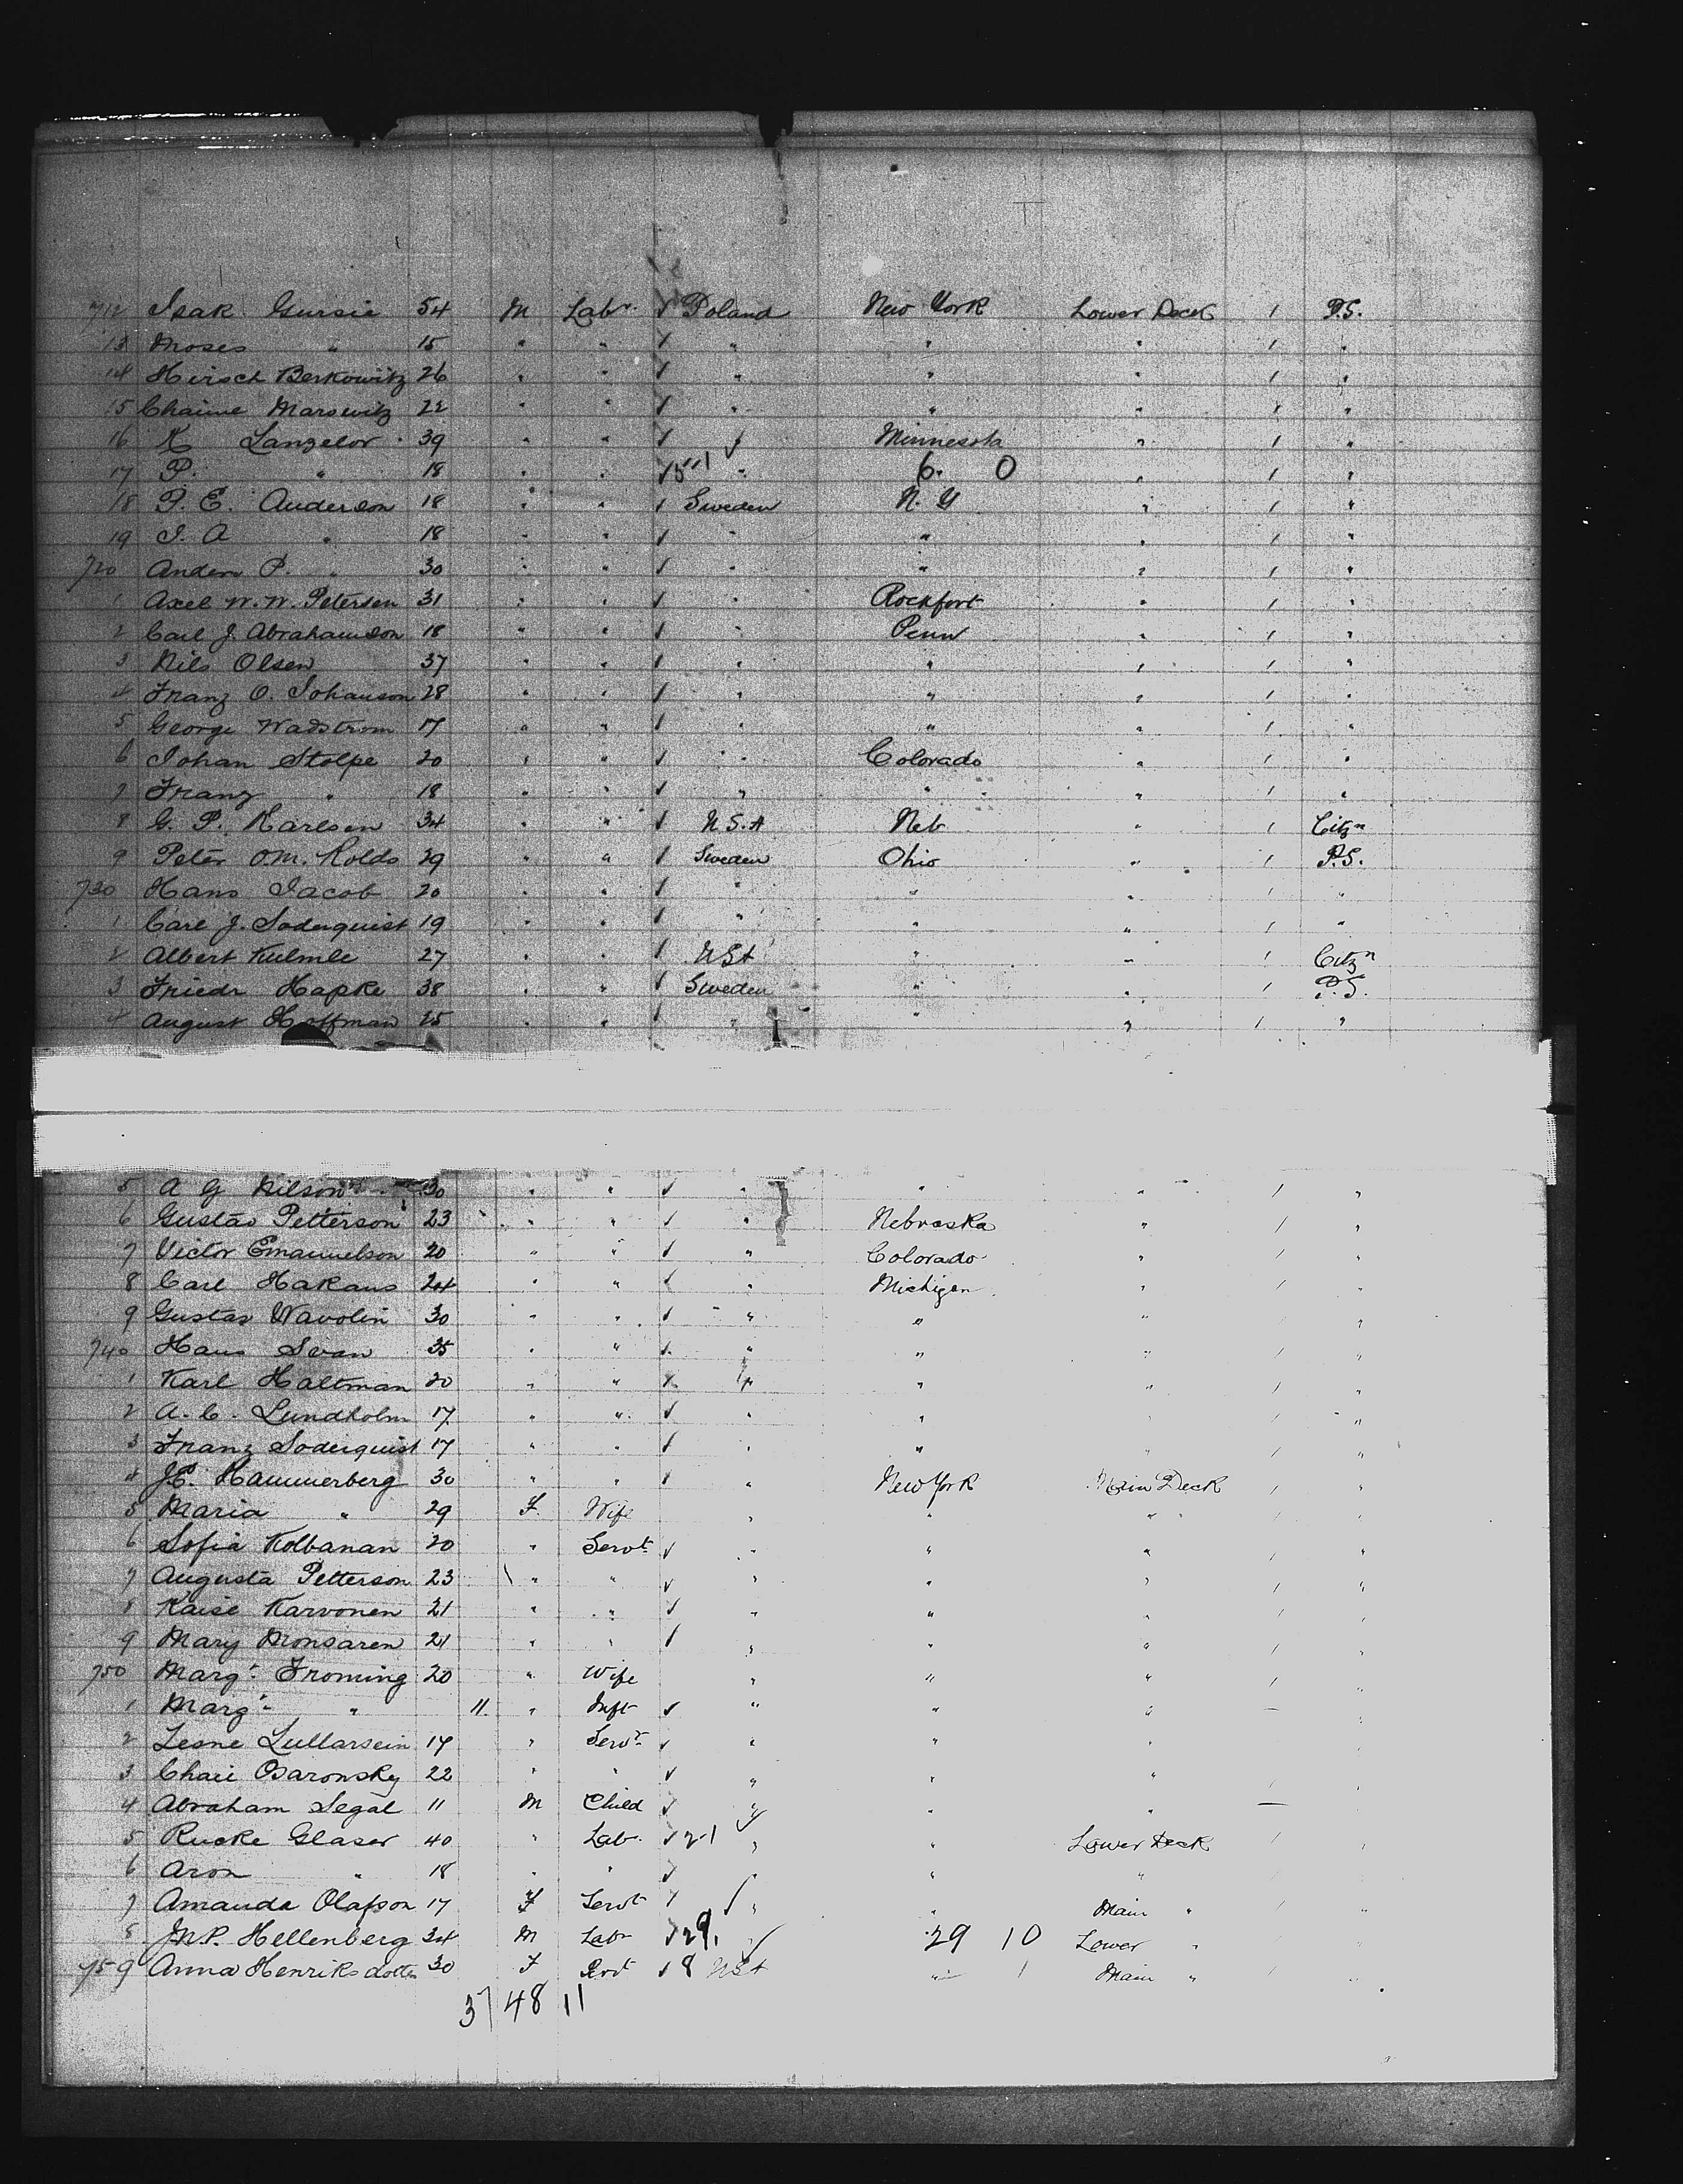 712 Isak Gursie 54 M Labr. ✓ Poland New York Lower Deck 1 P.S.
13 Moses " 15 " " ✓ " " " 1 "
14 Hirsch Berkowitz 26 " " ✓ " " " 1 "
15 Chaime Marowitz 22 " " ✓ " " " 1 "
16 K Lanzelor 39 " " ✓ " Minnesota " 1 "
17 P. " 18 " " ✓ " 6. 0 " 1 "
18 P. E. Anderson 18 " " ✓ Sweden N. Y " 1 "
19 I. A " 18 " " ✓ " " " 1 "
720 Anders P. " 30 " " ✓ " " " 1 "
1 Axel W. W. Petersen 31 " " ✓ " Rockfort " 1 "
2 Carl J. Abrahamson 18 " " ✓ " Penn " 1 "
3 Nils Olsen 37 " " ✓ " " " 1 "
4 Franz O. Johanson 28 " " ✓ " " " 1 "
5 George Wadstrom 17 " " ✓ " " " 1 "
6 Johan Stolpe 20 " " ✓ " Colorado " 1 "
7 Franz " 18 " " ✓ " " " 1 "
8 G. P. Karlsen 34 " " ✓ U.S.A Neb " 1 Citzn
9 Peter O.M. Kolds 29 " " ✓ Sweden Ohio " 1 P.S.
730 Hans Jacob 20 " " ✓ " " " 1 "
1 Carl J. Soderquist 19 " " ✓ " " " 1 "
2 Albert Kulmle 27 " " ✓ USA " " 1 Citzn
3 Friedr Hapke 38 " " ✓ Sweden " " 1 P.S.
4 August Hoffman 25 " " ✓ " " " 1 "
5 A G Nilson 30 " " ✓ " " " 1 "
6 Gustav Petterson 23 " " ✓ " Nebraska " 1 "
7 Victor Emanuelson 20 " " ✓ " Colorado " 1 "
8 Carl Hakans 24 " " ✓ " Michigan " 1 "
9 Gustav Wavolin 30 " " ✓ " " " "
740 Hans Svan 35 " " ✓ " " " 1 "
1 Karl Haltman 20 " " ✓ " " " 1 "
2 A. C. Lundholm 17 " " ✓ " " " 1 "
3 Franz Soderquist 17 " " ✓ " " " 1 "
4 J.E. Hammerberg 30 " " ✓ " New York Main Deck 1 "
5 Maria " 29 F. Wife " " " 1 "
6 Sofia Kolbanan 20 " Servt ✓ " " " 1 "
7 Augusta Petterson 23 " " ✓ " " " 1 "
8 Kaise Karvonen 21 " " ✓ " " " 1 "
9 Mary Monsaren 21 " " ✓ " " " 1 "
750 Margt Froming 20 " Wife " " " 1 "
1 Margt " 11. " Inft ✓ " " " — "
2 Lesne Lullarsein 17 " Servt ✓ " " " "
3 Chaie Osaronsky 22 " " ✓ " " " "
4 Abraham Segal 11 M Child ✓ " " " — "
5 Rucke Glaser 40 " Lab. ✓ 2-1 " " Lower Deck 1 "
6 Aron " 18 " " ✓ " " " 1
7 Amanda Olafson 17 F Servt ✓ " " Main " 1 "
8 M.P. Hellenberg 34 M Labr ✓ 29. 29 10 Lower " 1 "
759 Anna Henriksdotter 30 F Servt ✓ 8 USA " 1 Main " 1 "
37 48 11